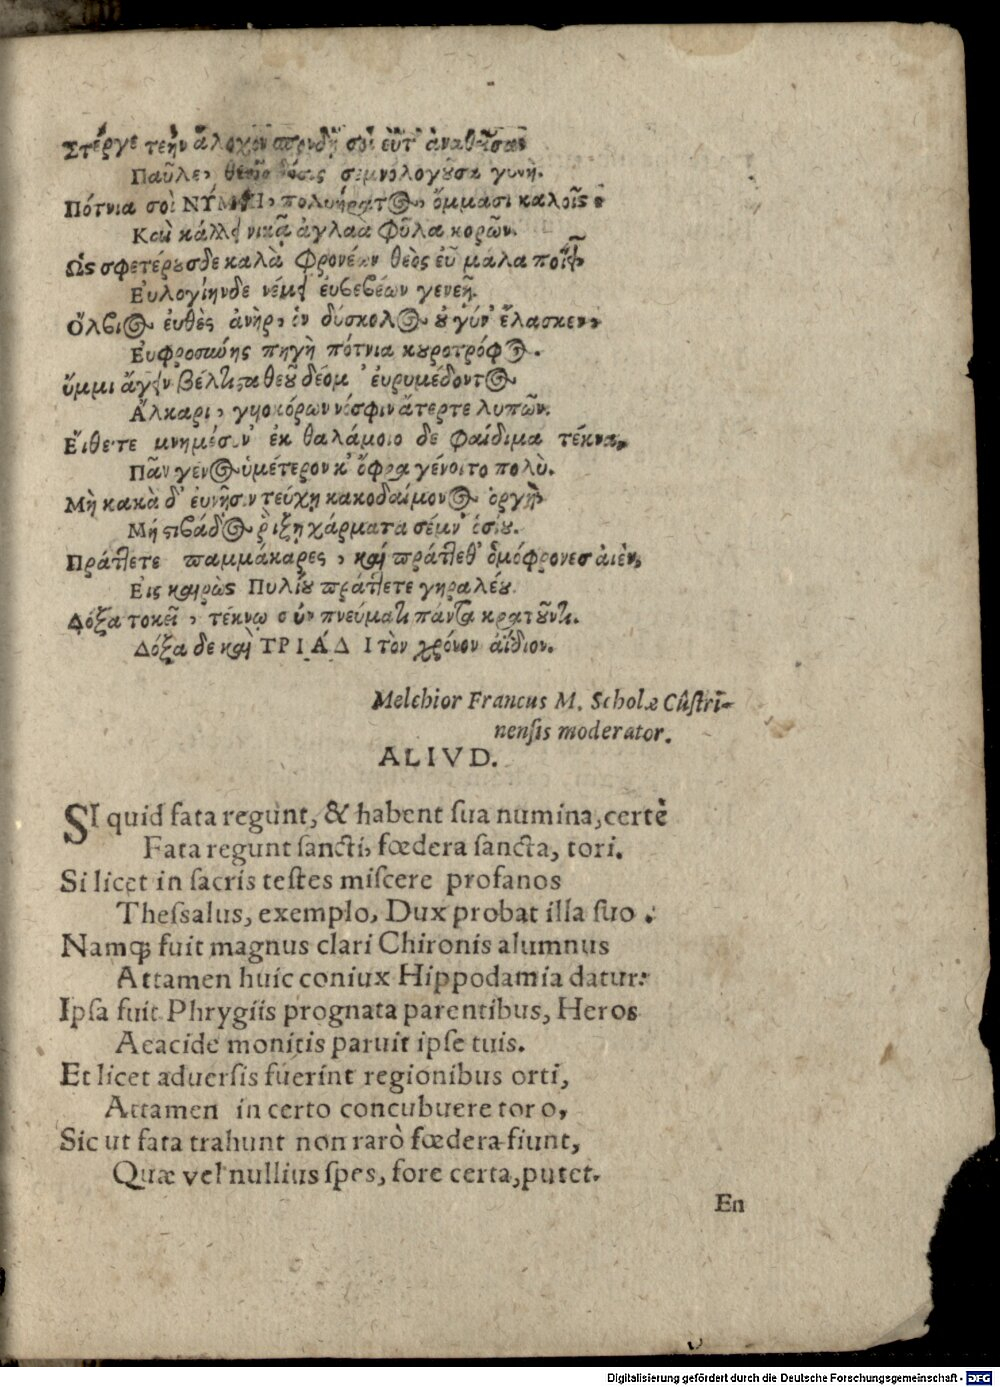 Στέργε τεὴν ἄλοχον σπονδῇ σοὶ εὖτ'
Παῦλε, σεμνολογοῦσα γυνὴ.
Πότνια σοὶ ΝΎΜΦΗ, πολυήρατος, ὄμμασι καλοῖς
Καὶ κάλλει νικᾷ ἀγλαὰ φῦλα κορῶν.
Ὡς σφετέρους δε καλὰ φρονέειν θεὸς εὖ μάλα
Ευλογίην δε νέμει ἐυσεβέων γενεῇ.
Ὄλβιος ἐυθὲς ἀνὴρ, ὁν δύσκολος ἔλασκεν,
Ευφροσύνης πηγὴ πότνια κουροτρόφος.
ὔμμι ἄγειν βέλτιστα θεοῦ δέομ' ἐυρυμέδοντος
νόσφιν ἄτερτε λυπῶν.
Εἴθετε ἐκ θαλάμοιο δε φαίδιμα τέκνα,
Πᾶν γένος ὑμέτερον κ' ὄφρα γένοιτο πολὺ.
Μὴ κακὰ δ' ἐυνῆσιν τεύχῃ κακοδαίμονος ὀργὴ
Μή στιβάδος ῥιξῃ χάρματα σέμν' ὁσίου.
Πράττετε παμμάκαρες, καὶ πράττεθ' ὁμόφρονες ἀιὲν,
Εις καιρὼς Πυλίου πράττετε γηραλέου.
Δόξα τοκεῖ, τέκνῳ σὺν πνεύματι πάντα κρατοῦντι.
Δόξα δε καὶ ΤΡΙΆΔΙ τὸν χρόνον ἀΐδιον.
Melchior Francus M. Scholæ Cûstri-
nensis moderator.
ALIVD.
SI quid fata regunt, & habent sua numina, certè
Fata regunt sancti, fœdera sancta, tori.
Si licet in sacris testes miscere profanos
Thessalus, exemplo, Dux probat illa suo.
Namq; fuit magnus clari Chironis alumnus
Attamen huic coniux Hippodamia datur:
Ipsa fuit Phrygiis prognata parentibus, Heros
Aeacide monitis paruit ipse tuis.
Et licet aduersis fuerint regionibus orti,
Attamen in certo concubuere toro,
Sic ut fata trahunt non rarò fœdera fiunt,
Quæ vel nullius spes, fore certa, putet.
En
Digitalisierung gefördert durch die Deutsche Forschungsgemeinschaft - DFG